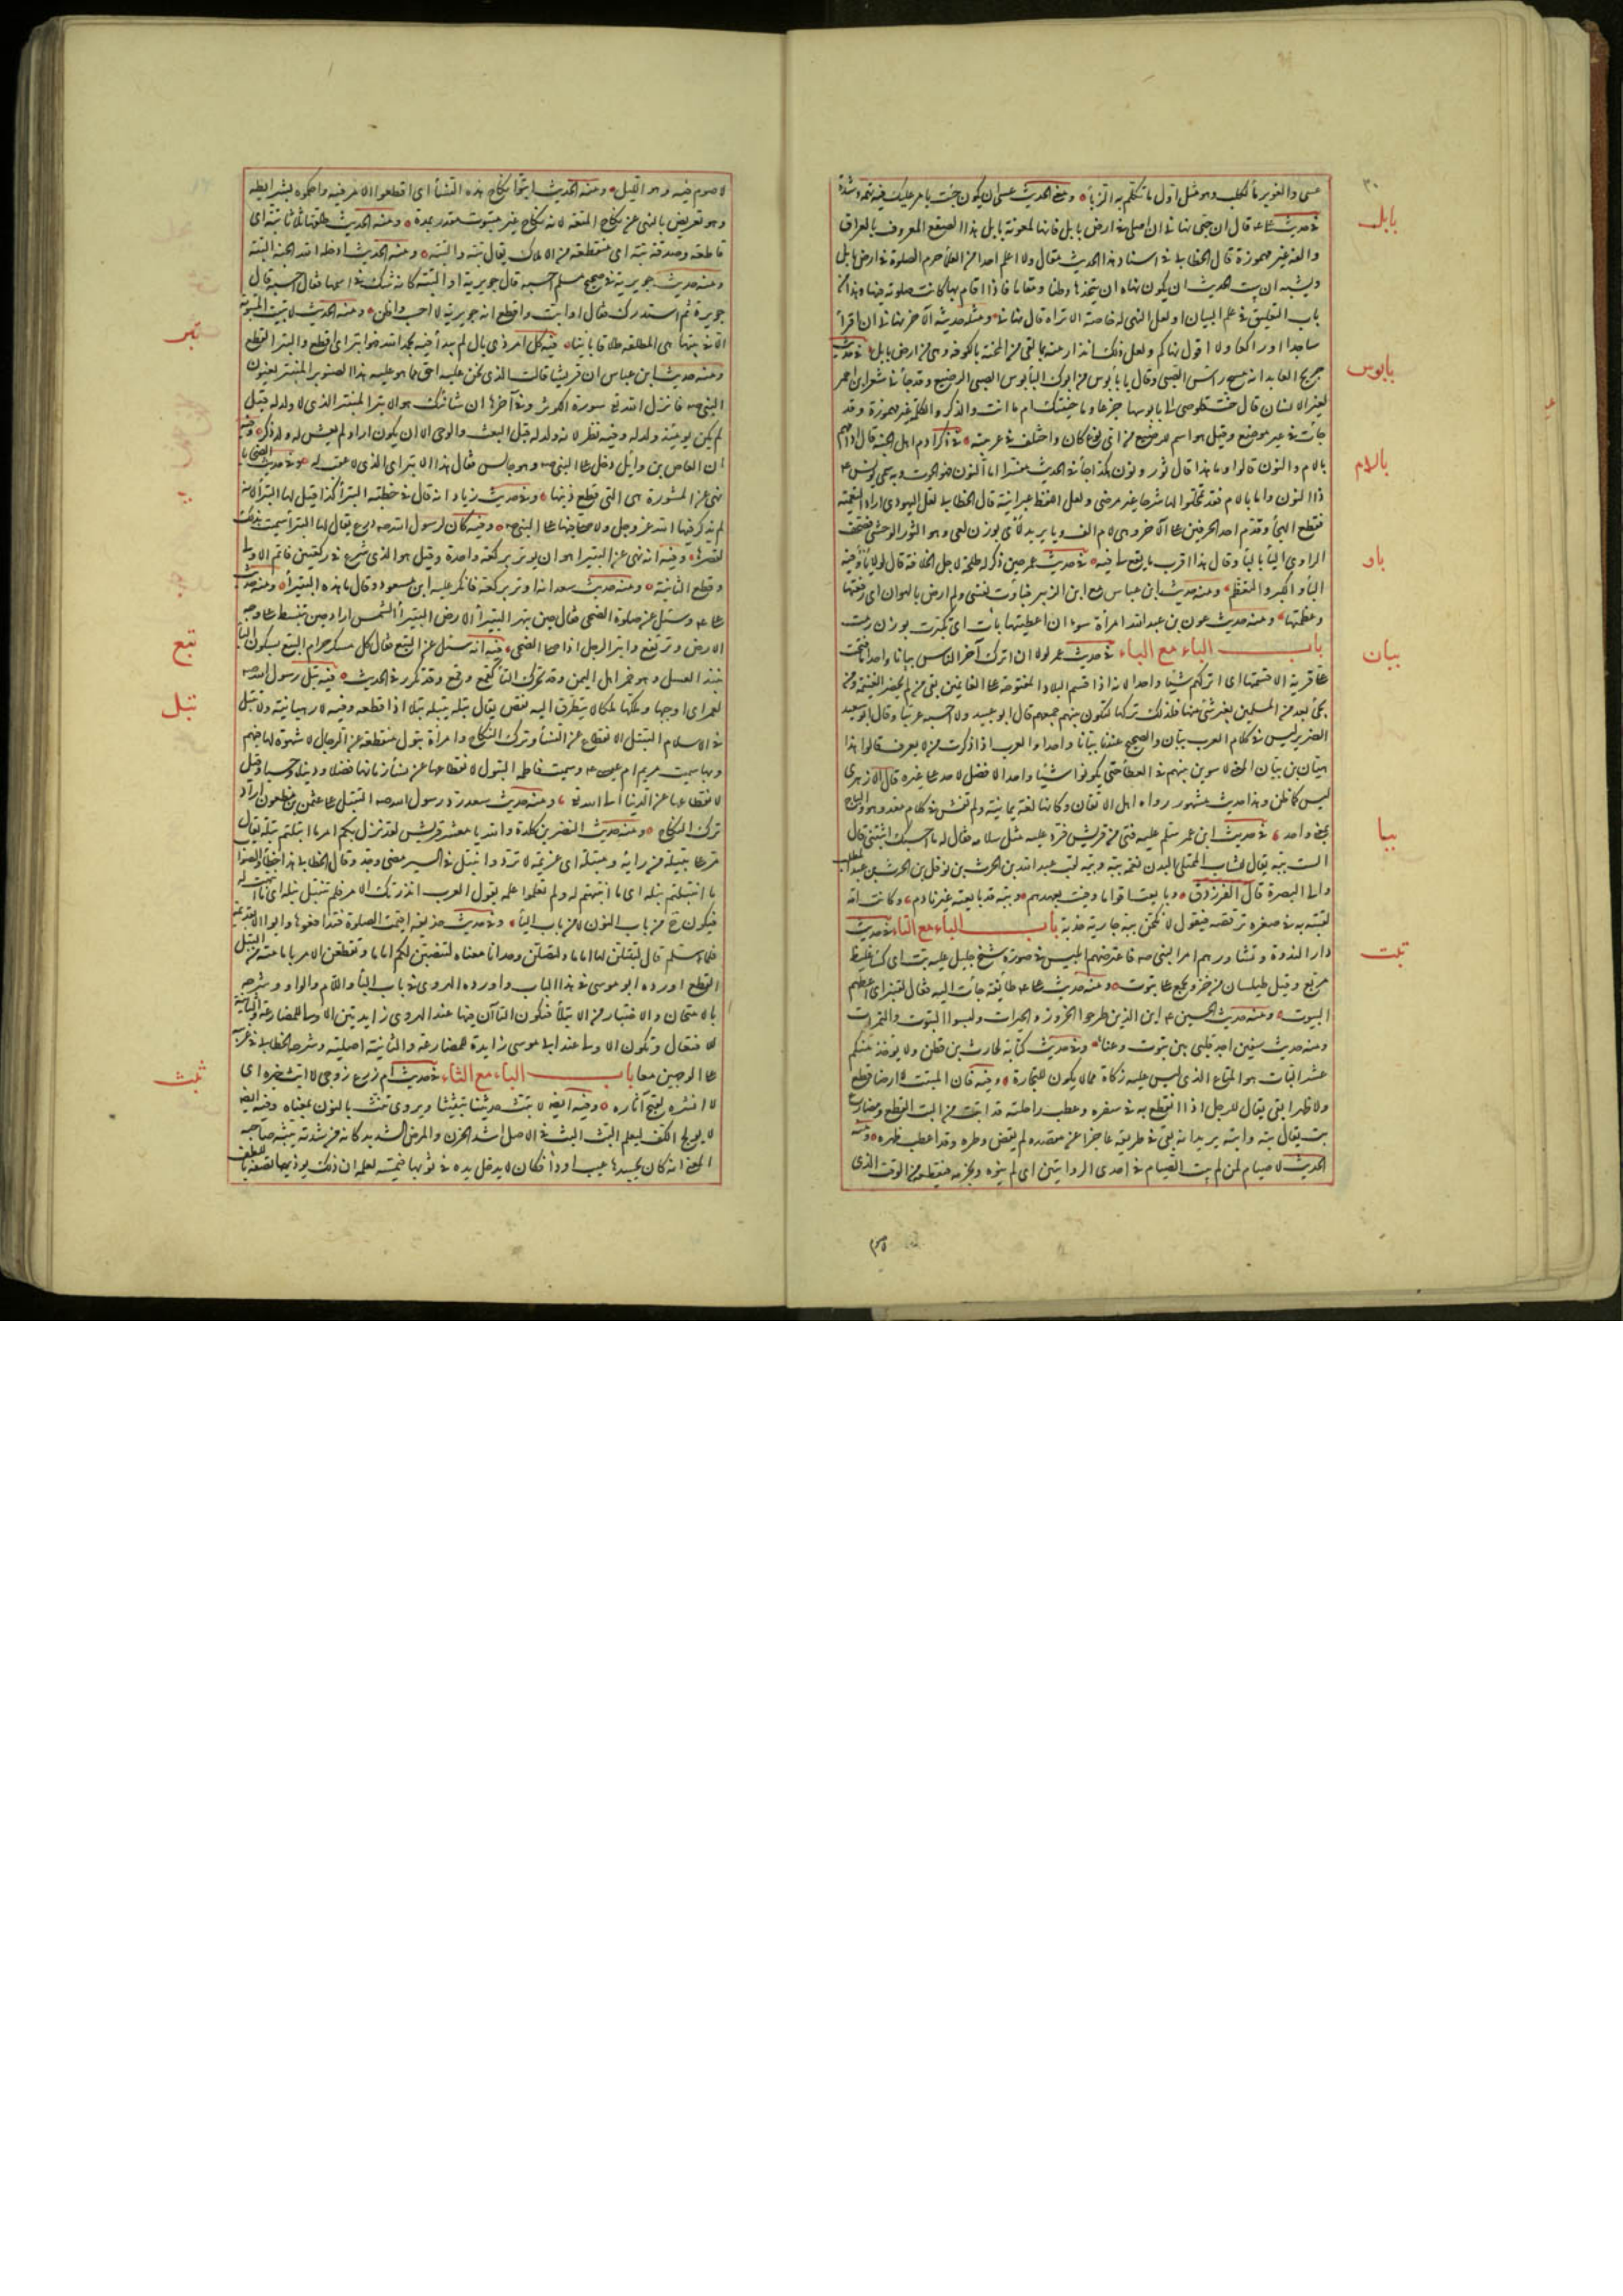 بابل
بابوس
بالام
باو
ببان
ببا
بتت
عسى والغوير مأكلب وهو مثل اول ما تكلم به الزبأ ومعنى الحديث عسى ان يكون جئت بامر عليك فيه تهمة وشدة
في حديث علي قال ان حبي نهاني ان اصلي في ارض بابل فانها ملعونة بابل هذا الصقع المعروف بالعراق
والفه غير مهموزة قال الخطابي في اسناد هذا الحديث مقال ولا اعلم احدا من العلمأ حرم الصلوة في ارض بابل
ويشبه ان ثبت الحديث ان يكون نهاه ان يتخذها وطنا ومقاما فاذا اقام بها كانت صلوته فيها وهذا من
باب التعليق في علم البيان او لعل النهي له خاصة الا تراه قال نهاني ومثله حديثه الآخر نهاني ان اقرأ
ساجدا او راكعا ولا اقول نهاكم ولعل ذلك انذار منه بما لقي من المحنة بالكوفة وهي من ارض بابل في حديث
جريج العابد انه مسح رأس الصبي وقال يا بابوس من ابوك البابوس الصبي الرضيع وقد جأ في شعر ابن احمر
لغير الانسان قال حنت قلوصي الى بابوسها جزعا وما حنينك ام ما انت والذكر والكلمة غير مهموزة وقد
جأت في غير موضع وقيل هو اسم للرضيع من اي نوع كان واختلف في عربيته في ذكر ادم اهل الجنة قال ادامهم
بالام والنون قالوا وما هذا قال ثور ونون هكذا جأ في الحديث مفسرا اما النون فهو الحوت وبه سمي يونس
ذا النون واما بالام فقد تمحلوا لها شرحا غير مرضي ولعل اللفظة عبرانية قال الخطابي لعل اليهودي اراد التعمية
فقطع الهجأ وقدم احد الحرفين على الآخر وهي لام الف ويا يريد لأى بوزن لعى وهو الثور الوحشي فصحف
الراوي اليأ بالبأ وقال هذا اقرب ما يقع لي فيه في حديث عمر حين ذكر له طلحة لاجل الخلافة قال لولا بأو فيه
البأو الكبر والتعظم ومنه حديث ابن عباس مع ابن الزبير فبأوت بنفسي ولم ارض بالهوان اي رفعتها
وعظمتها ومنه حديث عون بن عبد الله امرأة سوء ان اعطيتها بأت اي تكبرت بوزن رعت
باب الباء مع الباء في حديث عمر لولا ان اترك آخر الناس ببانا واحدا ما فتحت
على قرية الا قسمتها اي اتركهم شيئا واحدا لانه اذا قسم البلاد المفتوحة على الغانمين بقي من لم يحضر الغنيمة ومن
يجئ بعد من المسلمين بغير شئ منها فلذلك تركها لتكون بينهم جميعهم قال ابو عبيد ولا احسبه عربيا وقال ابو سعيد
الضرير ليس في كلام العرب ببان والصحيح عندنا بيانا واحدا والعرب اذا ذكرت من لا يعرف قالوا هذا
هيان بن بيان المعنى لاسوين بينهم في العطأ حتى يكونوا شيئا واحدا لا فضل لاحد على غيره قال الازهري
ليس كما ظن وهذا حديث مشهور رواه اهل الاتقان وكانها لغة يمانية ولم تفش في كلام معد وهو والباج
بمعنى واحد في حديث ابن عمر سلم عليه فتى من قريش فرد عليه مثل سلامه فقال له ما احسبك اثبتني قال
الست ببة يقال للشاب الممتلئ البدن نعمة ببة وببة لقب عبد الله بن الحرث بن نوفل بن الحرث بن عبد المطلب
والي البصرة قال الفرزدق وبايعت اقواما وفيت بعهدهم وببة قد بايعته غير نادم وكانت امه
لقبته به في صغره ترقصه فيقول لانكحن ببه جارية خدبه باب الباء مع التاء في حديث
دار الندوة وتشاورهم امر النبي صه فاعترضهم ابليس في صورة شيخ جليل عليه بت اي كسأ غليظ
مربع وقيل طيلسان من خز ويجمع على بتوت ومنه حديث علي طايفة جأت اليه فقال لقنبر اعطهم
البتوت ومنه حديث الحسين اين الذين طرحوا الخزوز والحبرات ولبسوا البتوت والنمرات
ومنه حديث سفين اجد قلبي بين بتوت وعبأ وفي حديث كتابه لحارث بن قطن ولا يؤخذ منكم
عشر البتات هو المتاع الذي ليس عليه زكاة مما لا يكون للتجارة وفيه فان المنبت لا ارضا قطع
ولا ظهرا ابقى يقال للرجل اذا انقطع به في سفره وعطب راحلته قد انبت من البت القطع وهو مطاوع
بت يقال بته وابته يريد انه بقي في طريقه عاجزا عن مقصده لم يقض وطره وقد اعطب ظهره ومنه
الحديث لا صيام لمن لم يبت الصيام في احدى الروايتين اي لم ينوه ويجزمه فيقطعه من الوقت الذي
لا صوم فيه وهو الليل ومنه الحديث ابتوا نكاح هذه النسأ اي اقطعوا الامر فيه واحكموه بشرايطه
وهو تعريض بالنهي عن نكاح المتعة لانه نكاح غير مبتوت مقدر بمدة ومنه الحديث طلقها ثلاثا بتة اي
قاطعة وصدقة بتة اي منقطعة من الاملاك يقال بتة والبتة ومنه الحديث ادخله الله الجنة البتة
ومنه حديث جويرية في صحيح مسلم احسبه قال جويرية او البتة كانه شك في اسمها فقال احسبه قال
جويرة ثم استدرك فقال او ابت واقطع انه جويرية لا احسب واظن ومنه الحديث لا تبيت المبتوتة
الا في بيتها هي المطلقة طلاقا باينا فيه كل امر ذي بال لم يبدأ فيه بحمد الله فهو ابتر اي اقطع والبتر القطع
ومنه حديث ابن عباس ان قريشا قالت الذي نحن عليه احق مما هو عليه هذا الصنبور المنبتر يعنون
النبي صه فانزل الله في سورة الكوثر وفي آخرها ان شانئك هو الابتر المنبتر الذي لا ولد له قيل
لم يكن يومئذ ولد له وفيه نظر لانه ولد له قبل البعث والوحي الا ان يكون اراد لم يعش له ولد ذكر وفيه
ان العاص بن وائل دخل على النبي صه وهو جالس فقال هذا الابتر اي الذي لا عقب له وفي حديث الضحايا
نهى عن المبتورة هي التي قطع ذنبها وفي حديث زياد انه قال في خطبته البترأ كذا قيل لها البترأ لانه
لم يذكر فيها الله عز وجل ولا صلى فيها على النبي صه وفيه كان لرسول الله صه درع يقال لها البترأ سميت بذلك
لقصرها وفيه انه نهى عن البتيرا هو ان يوتر بركعة واحدة وقيل هو الذي شرع في ركعتين فاتم الاولى
وقطع الثانية ومنه حديث سعد انه اوتر بركعة فانكر عليه ابن مسعود وقال ما هذه البتيرأ ومنه حديث
علي وسئل عن صلوة الضحى فقال حين تبهر البتيرأ الارض البتيرأ الشمس اراد حين تنبسط على وجه
الارض وترتفع وابتر الرجل اذا صلى الضحى فيه انه سئل عن البتع فقال كل مسكر حرام البتع بسكون التأ
نبيذ العسل وهو خمر اهل اليمن وقد تحرك التأ كقمع وقمع وقد تكرر في الحديث فيه بتل رسول الله صه
العمرى اي اوجبها وملكها ملكا لا يتطرق اليه نقض يقال بتله يبتله بتلا اذا قطعه وفيه لا رهبانية ولا تبتل
في الاسلام التبتل الانقطاع عن النسأ وترك النكاح وامرأة بتول منقطعة عن الرجال لا شهوة لها فيهم
وبها سميت مريم ام عيسى وسميت فاطمة البتول لانقطاعها عن نسأ زمانها فضلا ودينا وحسبا وقيل
لانقطاعها عن الدنيا الى الله ومنه حديث سعد رد رسول الله صه التبتل على عثمن بن مظعون اراد
ترك النكاح ومنه حديث النضر بن كلدة والله يا معشر قريش لقد نزل بكم امر ما ابتلتم بتله يقال
مر على بتيلة من رايه ومنبتلة اي عزيمة لا ترد وانبتل في السير مضى وجد وقال الخطابي هذا خطأ والصواب
ما انتبلتم نبله اي ما انتبهتم له ولم تعلموا علمه يقول العرب انذرتك الامر فلم تنتبل نبله اي ما انتبهت له
فيكون من باب النون لا من باب البأ وفي حديث حذيفة اقيمت الصلوة فتدافعوها وابوا الا تقديمه
فلما سلم قال لتبتلن لها اماما او لتصلن وحدانا معناه لتنصبن لكم اماما وتقطعن الامر بامامته من البتل
القطع اورده ابو موسى في هذا الباب واورده الهروي في باب البأ واللام والواو وشرحه
بالامتحان والاختبار من الابتلأ فتكون التاآن فيها عند الهروي زايدتين الاولى للمضارعة والثانية
للافتعال وتكون الاولى عند ابي موسى زايدة للمضارعة والثانية اصلية وشرحه الخطابي في غريبه
على الوجهين معا باب الباء مع الثاء في حديث ام زرع زوجي لا ابث خبره اي
لا انشره لقبح آثاره وفيه ايضا لا تبث حديثنا تبثيثا ويروى تنث بالنون بمعناه وفيه ايضا
لا يولج الكف ليعلم البث البث في الاصل اشد الحزن والمرض الشديد كانه من شدته يبثه صاحبه
المعنى انه كان بجسدها عيب او دأ فكان لا يدخل يده في ثوبها فيمسه لعلمه ان ذلك يوذيها تصفه باللطف
بتر
بتع
بتل
بثث